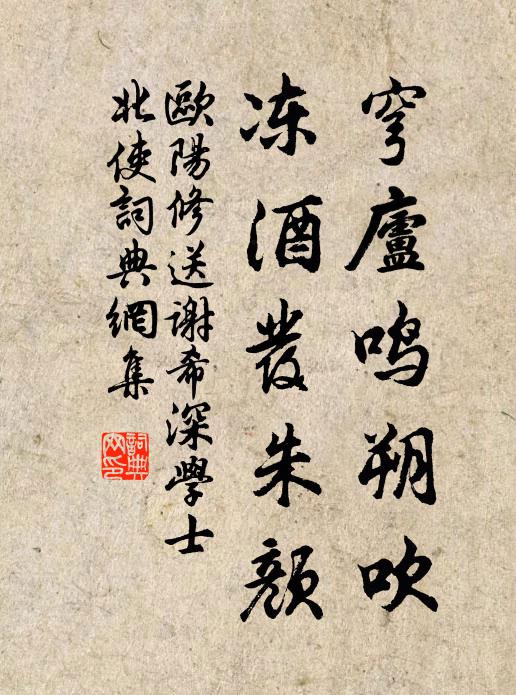 穹廬鳴朔吹
冻酒發朱颜
歐陽修送谢希深學士
北使詞典網集
詞典
网印